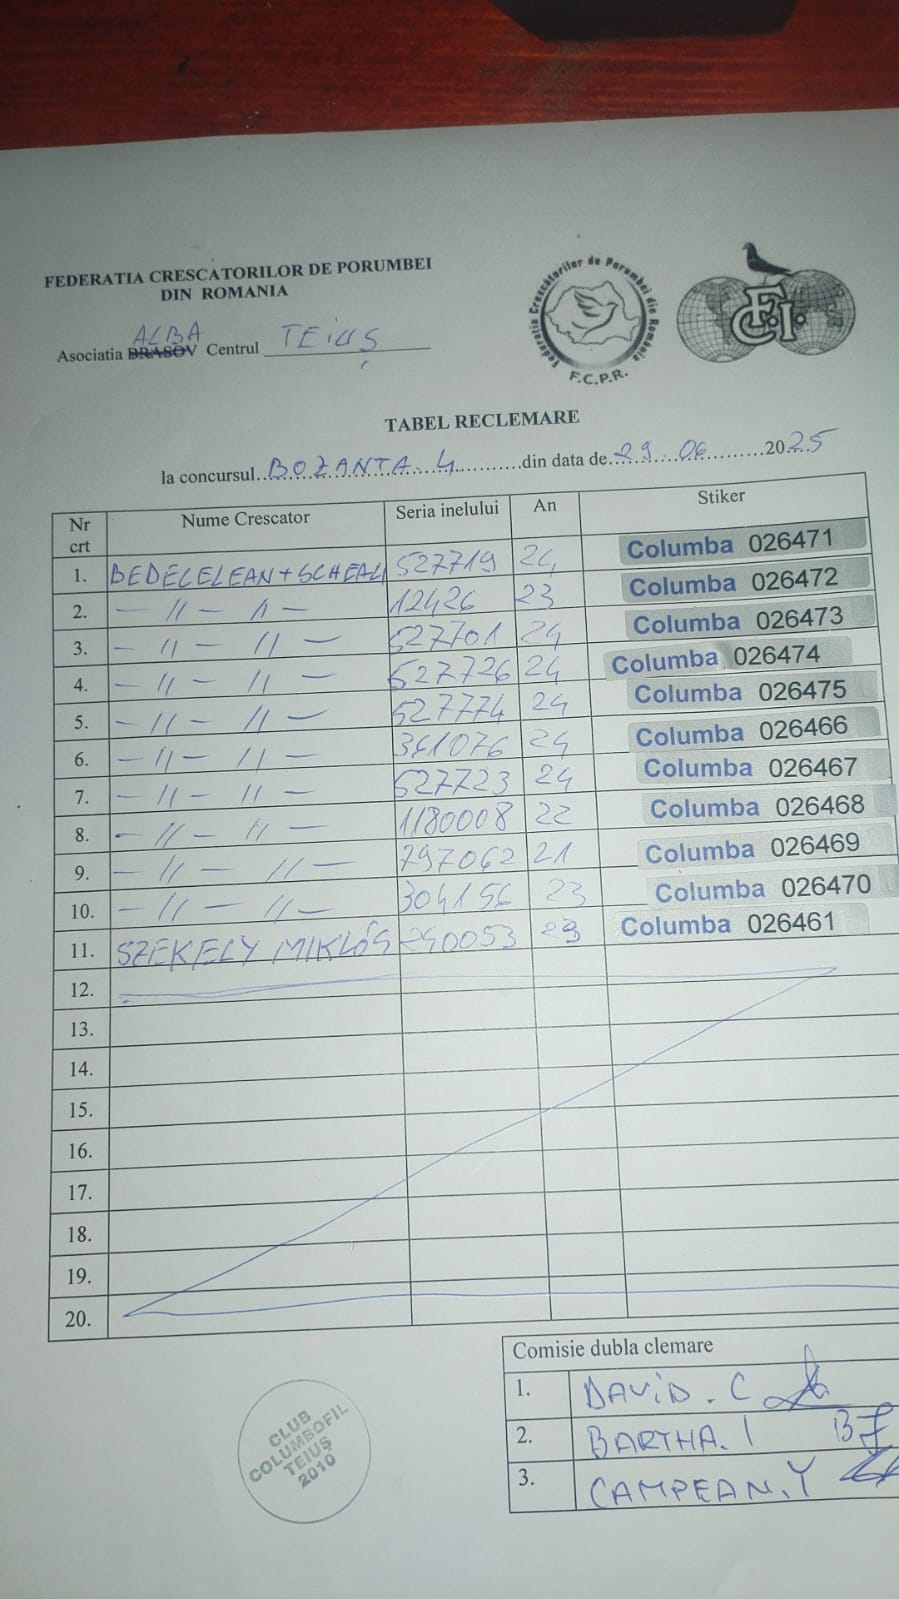 FEDERATIA CRESCATORILOR DE PORUMBEI
DIN ROMANIA
ALBA
Asociatia BRASOV Centrul TEIUȘ
Federatia Crescătorilor de Porumbei din România
F.C.P.R.
FCI
TABEL RECLEMARE
la concursul..BOZANTA 4...........din data de..29.06.........2025
Nr crt Nume Crescator Seria inelului An Stiker
1. BEDECELEAN+SCHEAU 527719 24 Columba 026471
2. — // — // — 12426 23 Columba 026472
3. — // — // — 527701 24 Columba 026473
4. — // — // — 527726 24 Columba 026474
5. — // — // — 527774 24 Columba 026475
6. — // — // — 361076 24 Columba 026466
7. — // — // — 527723 24 Columba 026467
8. — // — // — 1180008 22 Columba 026468
9. — // — // — 797062 21 Columba 026469
10. — // — // — 304156 23 Columba 026470
11. SZEKELY MIKLÓS 240053 23 Columba 026461
12.
13.
14.
15.
16.
17.
18.
19.
20.
Comisie dubla clemare
1. DAVID. C
2. BARTHA. I
3. CAMPEAN. Y
CLUB
COLUMBOFIL
TEIUȘ
2010